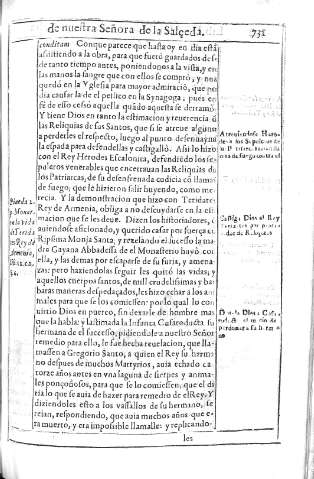 de nuestra Señora de la Salçeda. 731
conditam Con que parece que hasta oy en dia està
assistiendo a la obra, para que fuero guardados de
de tanto tiempo antes, poniendonos a la vista, y en
las manos la sangre con que ellos se compró, y nos
quedò en la Yglesia para mayor admiraciõ, que po
dia causar la de el pesitco en la Synagoga, pues en
fe de esso cessò aquella quãdo aquesta se derramò.
Y tiene Dios en tanto la estimacion y reuerencia d
las Reliquias de sus Santos, que si se atreue alguno
a perderles el respecto, luego al punto desenuayna
la espada para defendellas y castigallo. Assi lo hizo
con el Rey Herodes Escalonita, defendiẽdo los se-
pulcros venerables que encerrauan las Reliquias de
los Patriarcas, de su desenfrenada codicia cõ llamas
de fuego, que le hizieron salir huyendo, como me-
recia. Y la demonstracion que hizo con Teridates
Rey de Armenia, obliga a no descuydarse en la esti
macion que se les deue. Dizen los historiadores, q
auiendose aficionado, y querido casar por fuerça cõ
Ripsima Monja Santa, y reuelãdo el sucesso la ma
dre Gayana Abbadessa de el Monasterio huyò con
ella, y las demas por escaparse de su furia, y amena-
zas: pero haziendolas seguir les quitò las vidas; y
aquellos cuerpos santos, de mill crudelissimas y bar
baras maneras despedaçados, les hizo echar a los ani
males para que se los comiessen: por lo qual lo con
uirtio Dios en puerco, sin dexarle de hombre mas
que la habla: y lastimada la Infanta Cusaroducta su
hermana de el sucesso, pidiendole a nuestro Señor
remedio para ello, le fue hecha reuelacion, que lla-
massen a Gregorio Santo, a quien el Rey su herma
no despues de muchos Martyrios, auia echado ca-
torze años antes en vna laguna de sierpes y anima-
les ponçoñosos, para que se lo comiessen, que el di
ria lo que se auia de hazer para remedio de el Rey. Y
diziendoles esto a los vassallos de su hermano, se
reian, respondiendo, que auia muchos años que e-
ra muerto, y era impossible llamalle: y replicando-
les